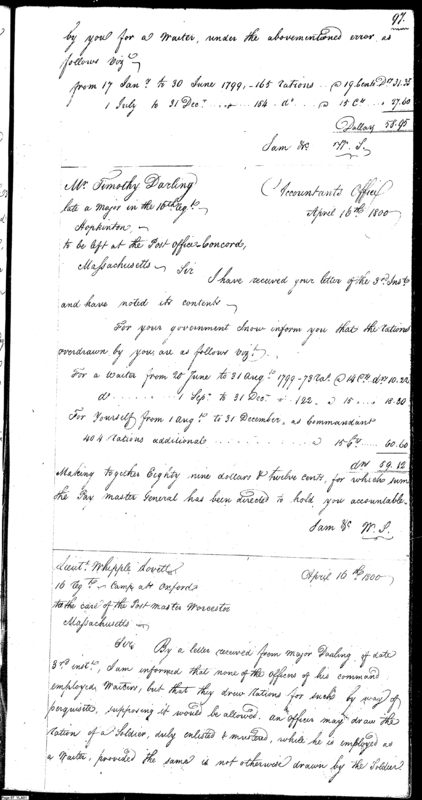 97.
by you for a Waiter, under the abovementioned error as
follows Viz.t
from 17 Jan.y to 30 June 1799, - 165 rations .. @ 19 Cents D.rs 31.35
1 July to 31 Dec.r .. 184 d.o .. @ 15 C.ts .. 27.60
Dollars 58.95
I am &c W. S.
M.r Timothy Darling
late a Major in the 16th Reg.t
Hopkinton
to be left at the Post Office Concord,
Massachusetts
Accountants Office
April 16th 1800
Sir
I have received your letter of the 3.rd Inst.t
and have noted its contents
For your government I now inform you that the rations
overdrawn by you are as follows Viz.t
For a Waiter from 20 June to 31 Aug.t 1799 - 73 rat.s @ 14 C.ts d.rs 10.22
d.o .......... 1 Sep.t to 31 Dec.r " 122 .. @ 15 .... 18.30
For Yourself from 1 Aug.t to 31 December, as Commandant
404 rations additional ......... @ 15 C.ts .... 60.60
d.rs 89.12
Making together Eighty nine dollars & twelve cents, for which sum
the Pay master General has been directed to hold you accountable.
I am &c W. S.
Lieut.t Whipple Lovett
16 Reg.t Camp at Oxford
to the care of the Post master Worcester
Massachusetts
April 16th 1800
Sir, By a letter received from Major Darling, of date
3.rd inst.t, I am informed that none of the Officers of his command
employed Waiters, but that they drew rations for such by way of
perquisite, supposing it would be allowed. An Officer may draw the
ration of a Soldier, duly enlisted & mustered, while he is employed as
a Waiter, provided the same is not otherwise drawn by the Soldier